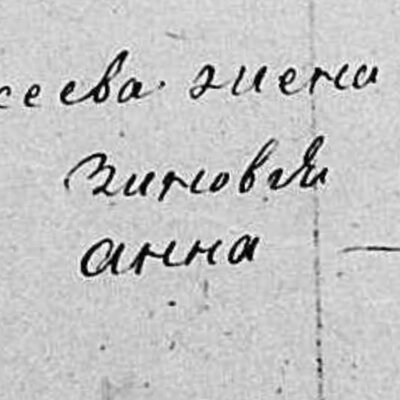 сеева жена
Зиновия
анна —